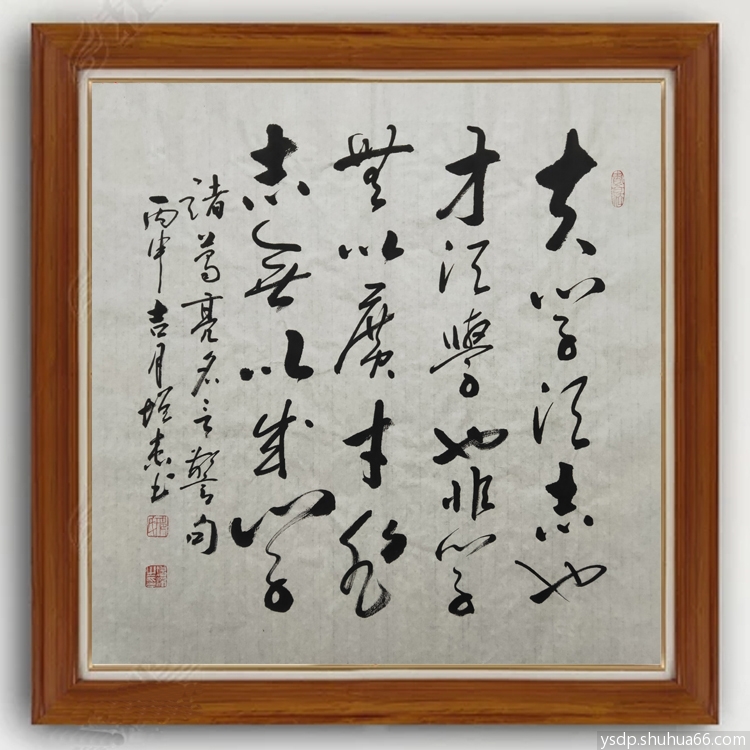 夫学须志也
才须學也非学
無以廣才非
志無以成学
诸葛亮名言警句
丙申吉月书
ysdp.shuhua66.com